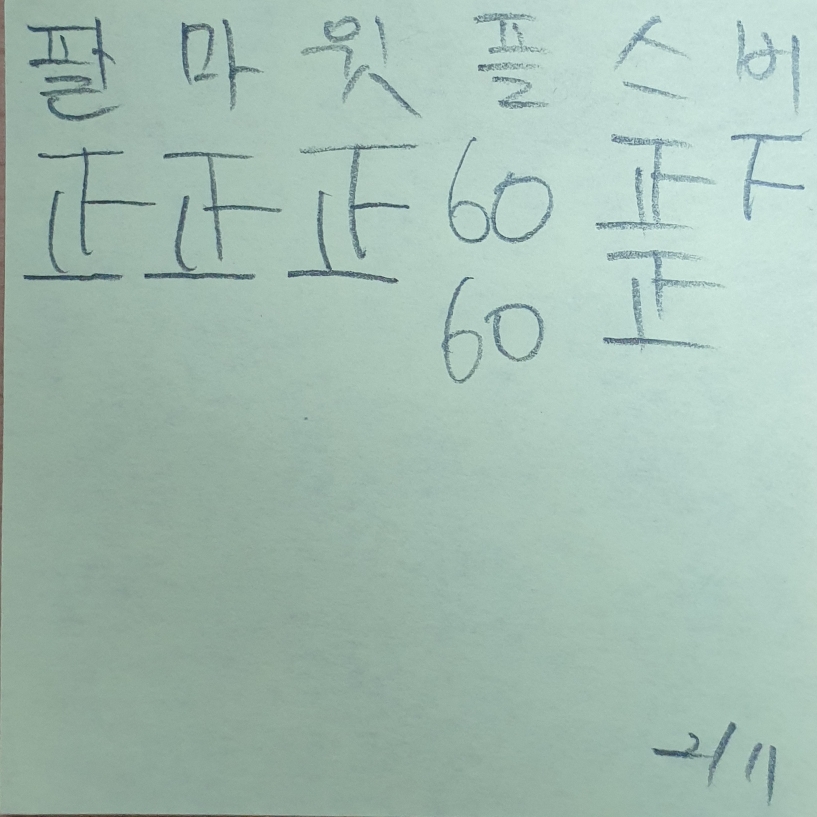 팔 마 윗 플 스 버
正 正 正 60 正 下
60 正
2/11